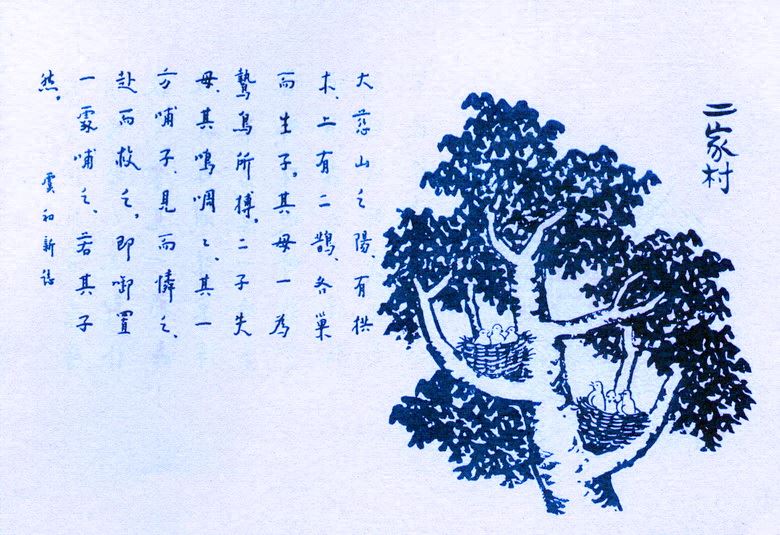 二家村
大慈山之陽、有拱
木、上有二鵲、各巢
而生子。其母一為
鷙鳥所搏。二子失
母、其鳴啁々、其一
方哺子、見而憐之、
赴而救之。即啣置
一窠哺之、若其子
然。
虞初新誌